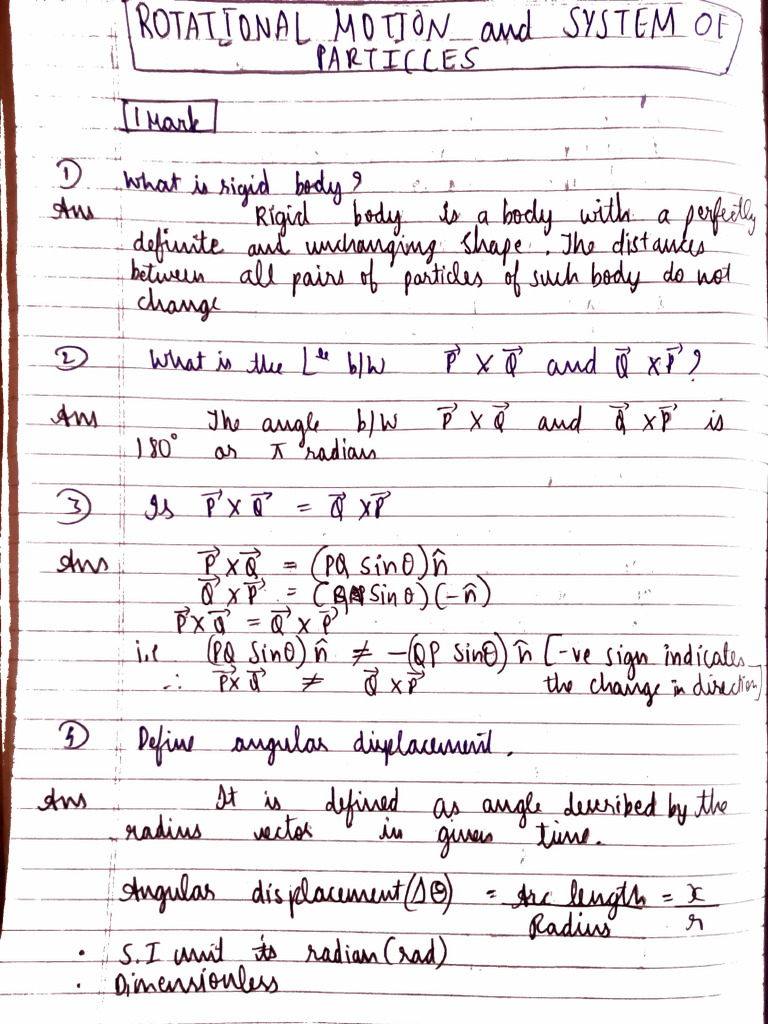 ROTATIONAL MOTION and SYSTEM OF
PARTICLES
1 Mark
1) What is rigid body?
Ans Rigid body is a body with a perfectly
definite and unchanging shape. The distances
between all pairs of particles of such body do not
change
2) What is the Lle b/w P⃗ X Q⃗ and Q⃗ X P⃗ ?
Ans The angle b/w P⃗ X Q⃗ and Q⃗ X P⃗ is
180° or π radian
3) Is P⃗ X Q⃗ = Q⃗ X P⃗
Ans P⃗ X Q⃗ = (PQ Sinθ) n̂
Q⃗ X P⃗ = (Sin θ) (-n̂)
P⃗ X Q⃗ = Q⃗ X P⃗
i.e (PQ Sinθ) n̂ ≠ -(QP sinθ) n̂ [-ve sign indicates
∴ P⃗ X Q⃗ ≠ Q⃗ X P⃗ the change in direction]
Define angular displacement.
Ans It is defined as angle described by the
radius vector in given time.
Angular displacement (Δθ) = Arc length = x
Radius r
• S.I unit is radian (rad)
• Dimensionless